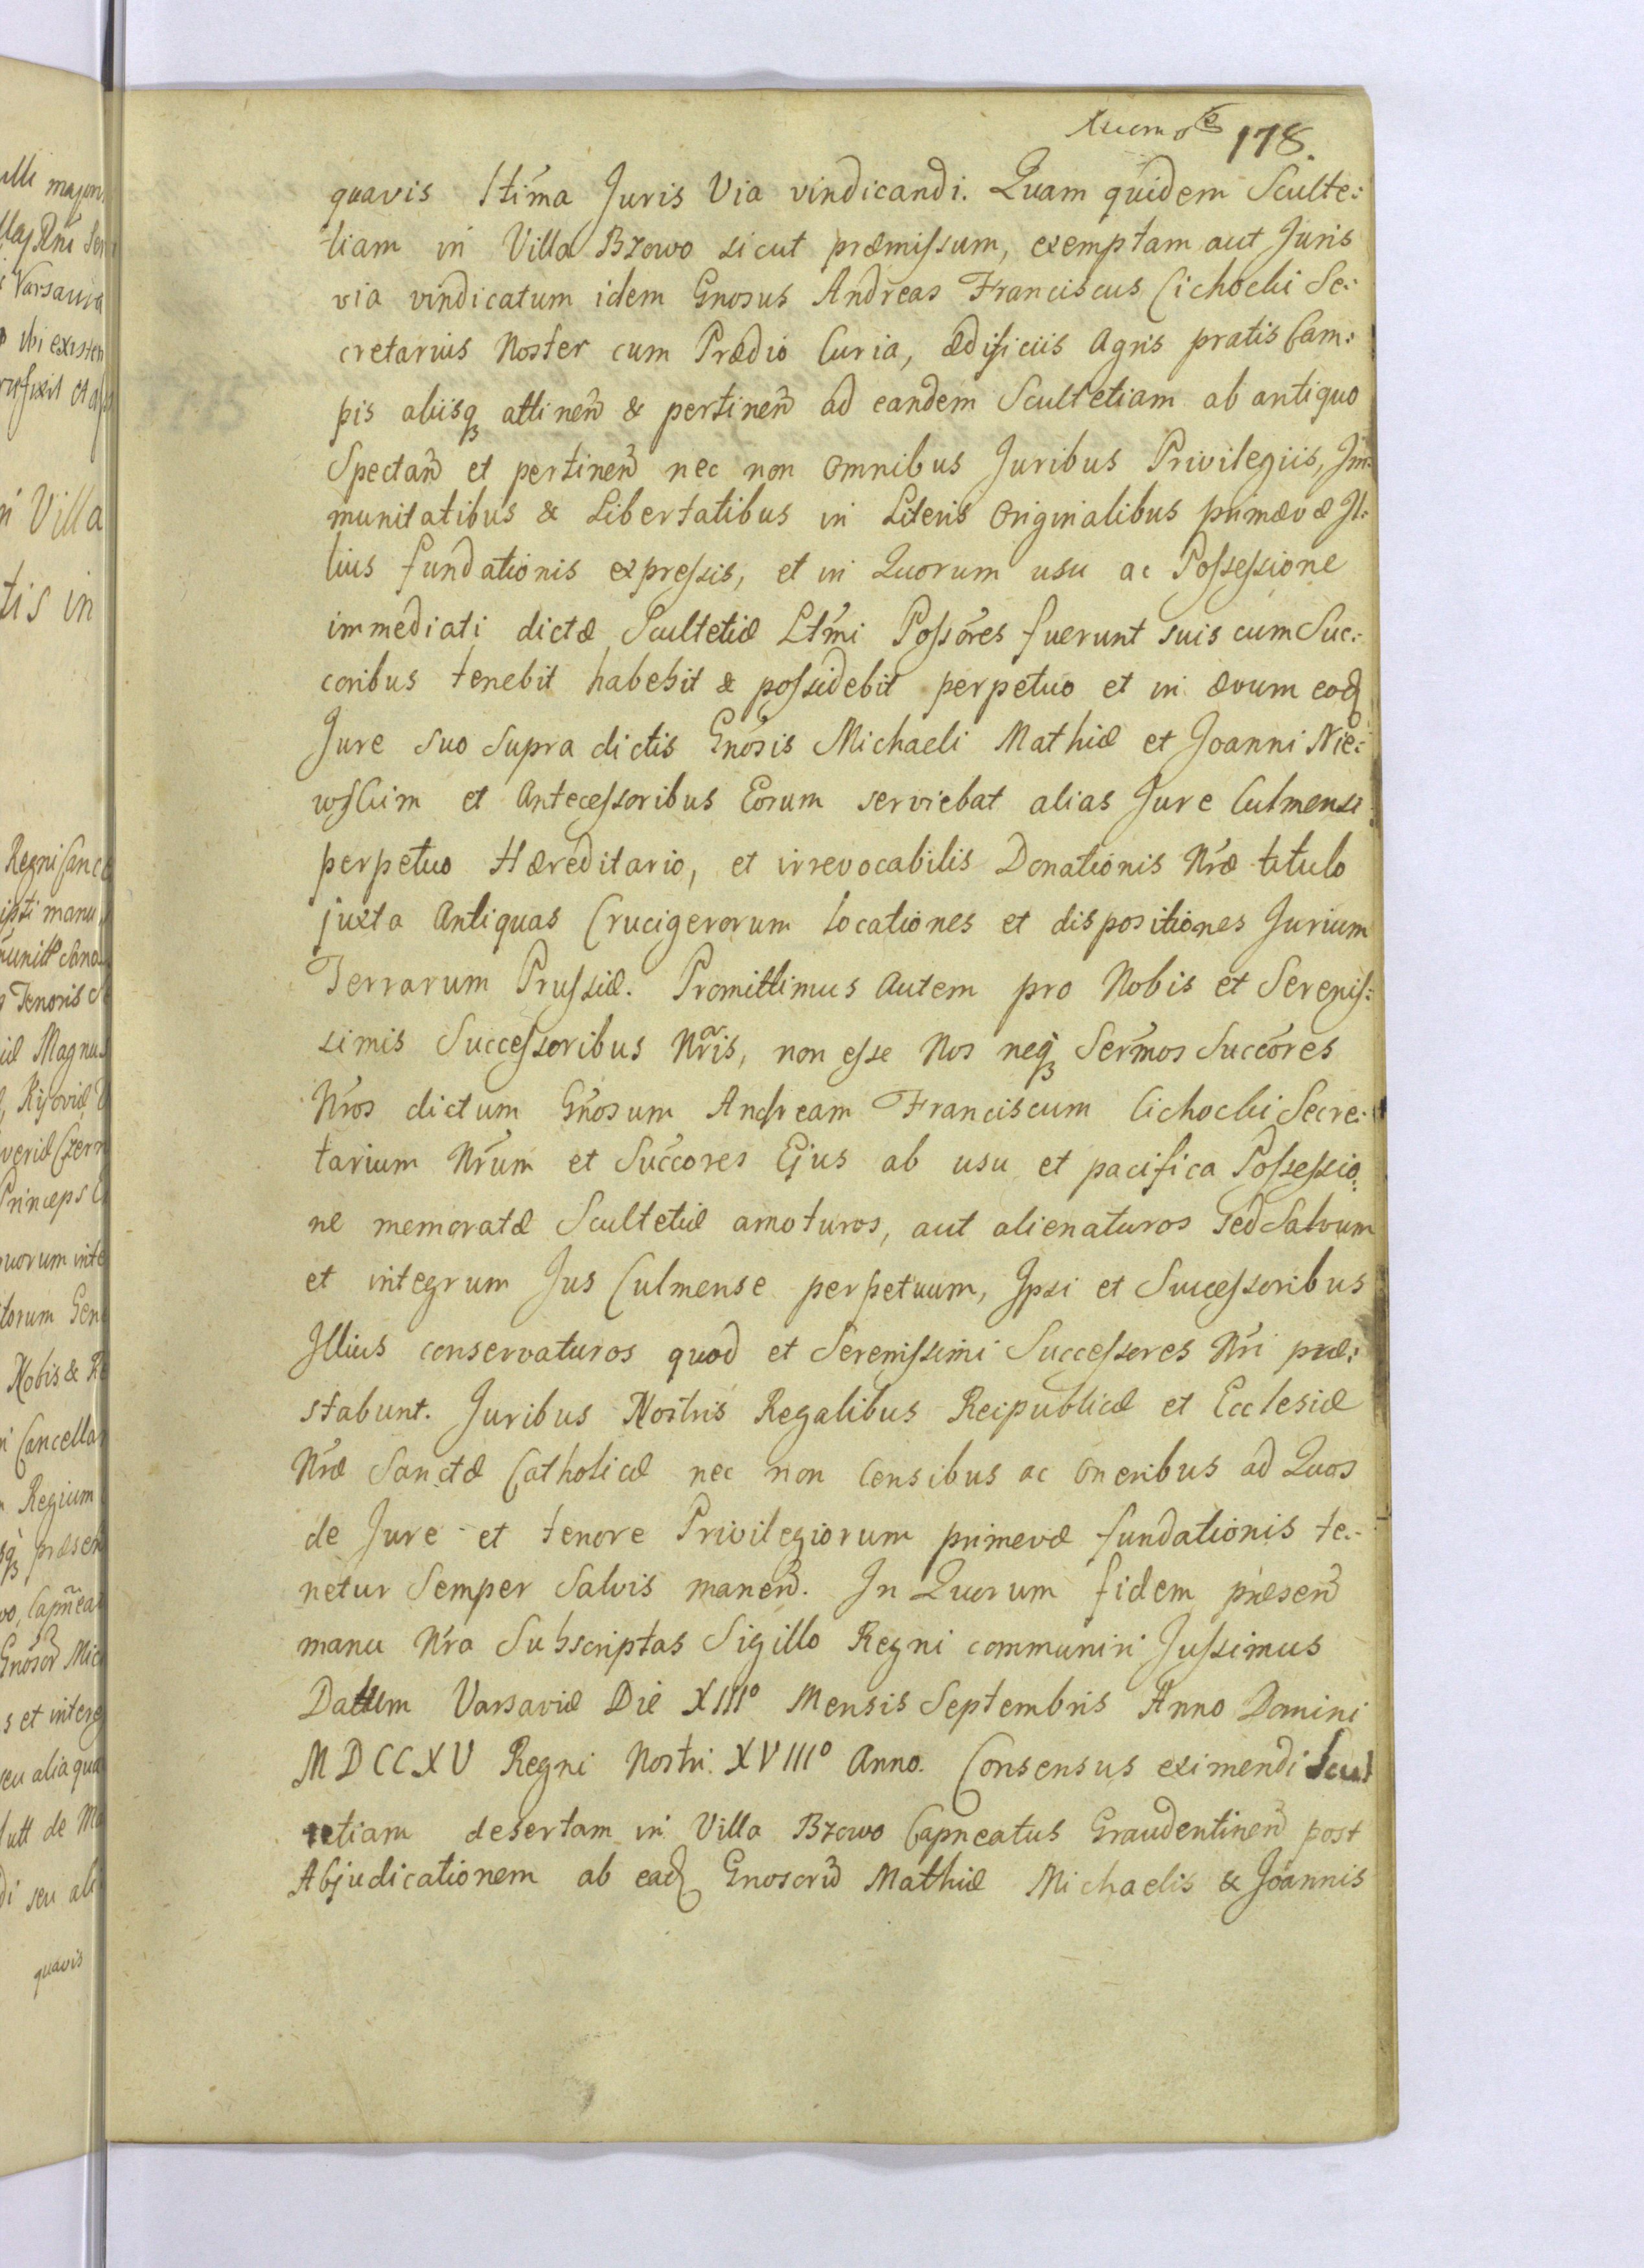 178.
quavis Ltima Juris Via vindicandi. Quam quidem Sculte:
tiam in Villa Bzowo sicut præmissum, exemptam aut Juris
via vindicatum idem Gnosus Andreas Franciscus Cichocki Se:
cretarius Noster cum Prædio Curia, ædificiis Agris pratis Cam:
pis aliisq attineñ & pertineñ ad eandem Scultetiam ab antiquo
Spectañ et pertineñ nec non omnibus Juribus Privilegiis, Im:
munitatibus & Libertatibus in Literis Originalibus primævæ Il:
lius fundationis expressis, et in Quorum usu ac Possessione
immediati dictæ Scultetiæ Ltmi Possores fuerunt suis cum Suc:
coribus tenebit habebit & possidebit perpetuo et in ævum eoq
Jure suo supra dictis Gnosis Michaeli Mathiæ et Joanni Nie:
wsciim et Antecessoribus Eorum serviebat alias Jure Culmensi
perpetuo Hæreditario, et irrevocabilis Donationis Nræ titulo
juxta Antiquas Crucigerorum locationes et dispositiones Jurium
Terrarum Prussiæ. Promittimus Autem pro Nobis et Serenis:
simis Successoribus Nris, non esse Nos neq Sermos Succores
Nros dictum Gnosum Andream Franciscum Cichocki Secre:
tarium Nrum et Succores Ejus ab usu et pacifica Possessio:
ne memoratæ Scultetiæ amoturos, aut alienaturos sed Salvum
et integrum Jus Culmense perpetuum, Ipsi et Successoribus
Illius conservaturos quod et Serenissimi Successores Nri præ:
stabunt. Juribus Nostris Regalibus Reipublicæ et Ecclesiæ
Nræ Sanctæ Catholicæ nec non Censibus ac oneribus ad Quos
de Jure et tenore Privilegiorum primevæ fundationis te:
netur Semper Salvis maneñ. In Quorum fidem præseñ
manu Nra Subscriptas Sigillo Regni communiri Jussimus
Dattum Varsaviæ Die XIIIº Mensis Septembris Anno Domini
MDCCXV Regni Nostri XVIIIº Anno. Consensus eximendi Scul
tetiam desertam in Villa Bzowo Capneatus Graudentineñ post
Abjudicationem ab eaq Gnosorũ Mathiæ Michaelis & Joannis
n Villa
tis in
quavis